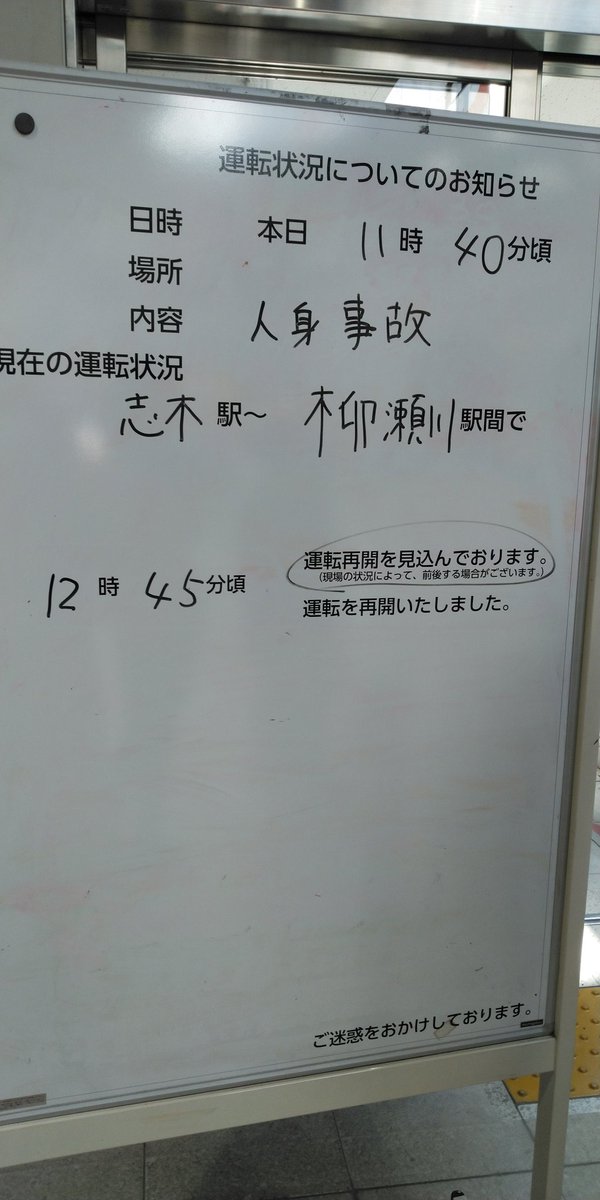 運転状況についてのお知らせ
日時 本日 11時 40分頃
場所
内容 人身事故
現在の運転状況
志木駅～ 柳瀬川駅間で
12時 45分頃 運転再開を見込んでおります。
（現場の状況によって、前後する場合がございます。）
運転を再開いたしました。
ご迷惑をおかけしております。